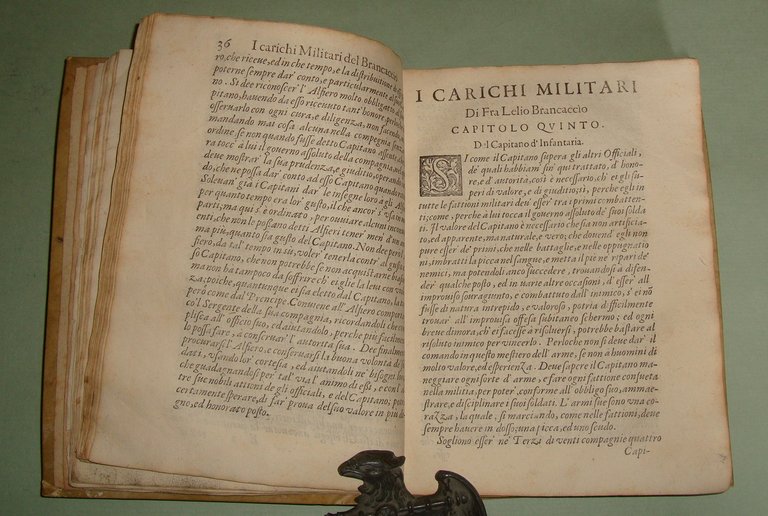 36 I carichi Militari del Brancaccio
ro, che riceve, ed in che tempo, e la distributione
poterne sempre dar' conto, e particularmente al suo
no. Si dee riconoscer' l'Alfiero molto obbligato al
pitano, havendo da esso ricevuto tant'honore, però
osservarlo con ogni cura, e diligenza, non facendo,
mandando mai cosa alcuna nella compagnia senz'
ordine se non quando fusse detto Capitano assente,
tocca à lui il governo assoluto della compagnia, nel
deve mostrar' la sua prudenza, e giuditio, operando
che ne possa dar' conto ad esso Capitano quando
Solevan' già i Capitani dar' le insegne loro agli Alfieri
per quanto tempo era lor' gusto, il che ancor' s'usa
parti, ma qui s'è ordinato, per ovviare alcuni inconvenienti
enti, che non le possano detti Alfieri tener' men d'un
ma più, quanto sia gusto del Capitano. Non conviene
fiero, da tal' tempo in sù, voler' tenerla contr' al gusto
so Capitano, che non potrebbe se non acquistarne biasmo
ma non ha tampoco da soffrire ch'egli e la levi con
za; poiche, quantunque ei sia eletto dal Capitano, la
però come dal Prencipe. Conviene all'Alfiero comportarsi
col Sergente della sua compagnia, ricordandoli che
plisca all'officio suo, ed aiutandolo, perche più facilmente
lo possa fare, a conservar' l'autorità sua. Dee finalmente
procurarsi l'Alfiero, e conservarsi la buona volontà de'
dati, usando lor' cortesia, ed aiutandoli ne' bisogni
che guadagnandosi per tal' via l'animo di essi, e con l'
tre sue nobili attioni de gli officiali, e del Capitano; potrà
certamente sperare, di far' prova del suo valore in più
gno, ed honorato posto.
I CARICHI MILITARI
Di Fra Lelio Brancaccio
CAPITOLO QVINTO.
Del Capitano d'Infantaria.
SI come il Capitano supera gli altri Officiali,
de' quali habbiam sin' quì trattato, d'hono-
re, e d'autorità, così è necessario, ch'ei gli supe-
ri di valore, e di giuditio; sì, perche egli in
tutte le fattioni militari dev'esser' trà i primi combatten-
ti; come, perche à lui tocca il governo assoluto de' suoi solda
ti. Il valore del Capitano è necessario che sia non artificia-
to, ed apparente, ma naturale, e vero; che dovend' egli non
pure esser' de' primi, che nelle battaglie, e nelle oppugnatio
ni, imbratti la picca nel sangue, e metta il piè ne i ripari de'
nemici, ma potendoli anco succedere, trovandosi a difen-
der' qualche posto, ed in varie altre occasioni, d'esser' all'
improviso sovragiunto, e combattuto dall'inimico, s'ei nō
fusse di natura intrepido, e valoroso, potria difficilmente
trovar' all'improvisa offesa subitaneo schermo; ed ogni
breve dimora, ch'ei facesse a risolversi, potrebbe bastare al
risoluto inimico per vincerlo. Perloche non si deve dar' il
comando in questo mestiero dell'arme, se non a huomini di
molto valore, ed esperienza. Deve sapere il Capitano ma-
neggiare ogni sorte d'arme, e fare ogni fattione consueta
nella militia, per poter', conforme all'obbligo suo, ammae-
strare, e disciplinare i suoi soldati. L'armi sue sono una co-
razza, la quale, sì marciando, come nelle fattioni, deve
sempre havere in dosso; una picca, ed uno scudo.
Sogliono esser' ne' Terzi di venti compagnie quattro
Capi-